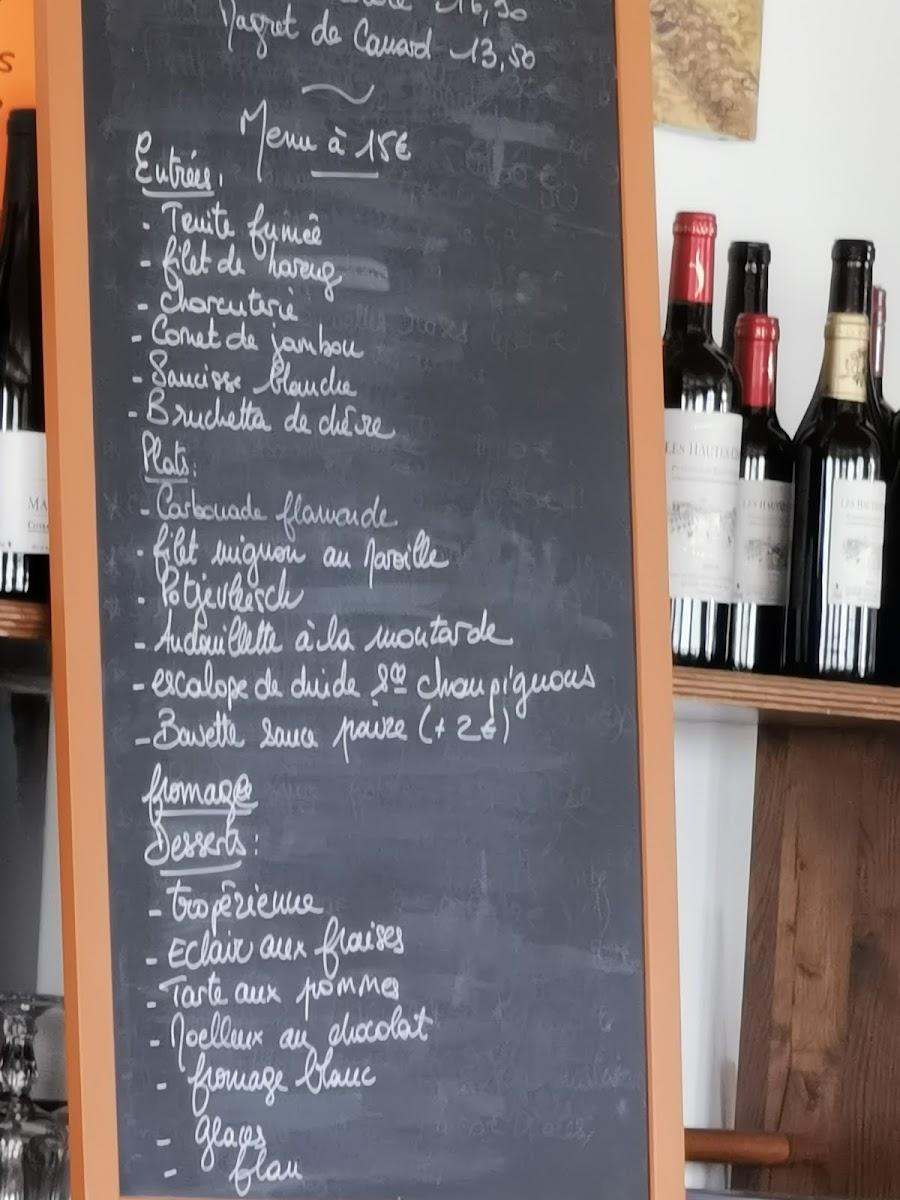 16,50
Magret de Canard 13,50
Menu à 15€
Entrées.
- Truite fumée
- filet de hareng
- Charcuterie
- Cornet de jambon
- Saucisse blanche
- Bruchetta de chèvre
Plats:
- Carbonade flamande
- filet mignon au Maroille
- Potjevleesch
- Andouillette à la moutarde
- escalope de dinde sce champignons
- Bavette sauce poivre (+ 2€)
fromage
Desserts:
- tropézienne
- Eclair aux fraises
- Tarte aux pommes
- Moelleux au chocolat
- fromage blanc
- glaces
- flan
LES HAUTES
LES HAUTES
LES HAUTES
MA